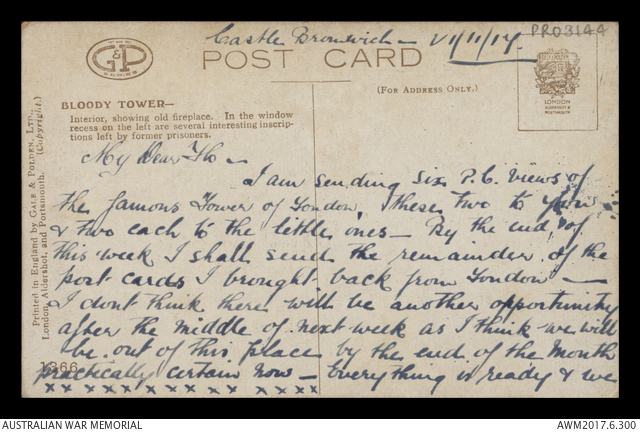 PRO3144
Castle Bromwich - 21/11/17.
G&P
POST CARD
BLOODY TOWER—
Interior, showing old fireplace. In the window
recess on the left are several interesting inscrip-
tions left by former prisoners.
(FOR ADDRESS ONLY.)
LONDON
ALDERSHOT &
PORTSMOUTH
Printed in England by GALE & POLDEN, LTD.,
London, Aldershot, and Portsmouth. (Copyright.)
My Dear Flo -
I am sending six P.C. views of
the famous Tower of London, these two to yours
& two each to the little ones - By the end of
this week I shall send the remainder of the
post cards I brought back from London -
I dont think there will be another opportunity
after the middle of next week as I think we will
be out of this place by the end of the month
1366
practically certain now - Everything is ready & we
x x x x x x x x x x x x x
AUSTRALIAN WAR MEMORIAL
AWM2017.6.300